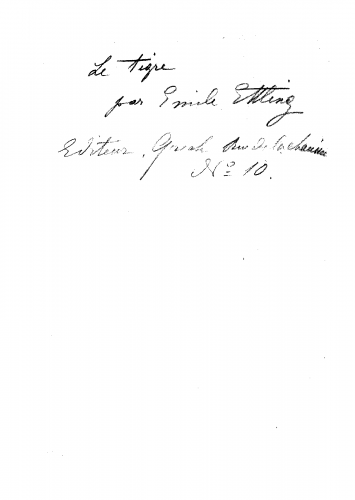 Le Tigre
par Emile Ettling
Editeur, Rue de la chaussée
Nº 10.